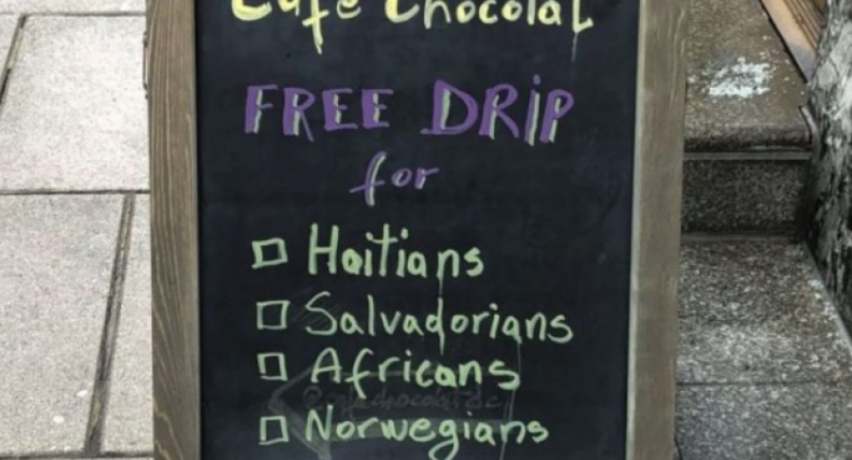 Café Chocolat
FREE DRIP
for
Haitians
Salvadorians
Africans
Norwegians